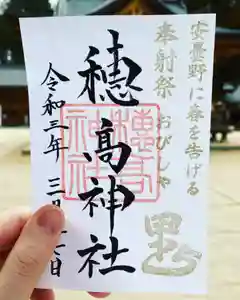 安曇野に春を告げる
奉射祭 おびしゃ
穂高神社
令和三年 三月十七日
穂高
神社